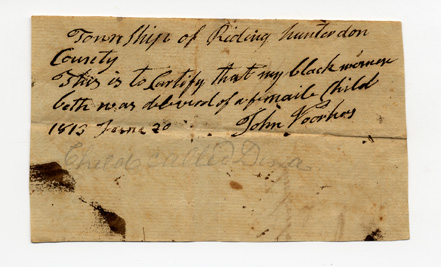 Township of Riding hunterdon
County
This is to Certify that my black women
beth was deliverd of a fimaile Child
1813 June 20 John Voorhos
Child Called Dina